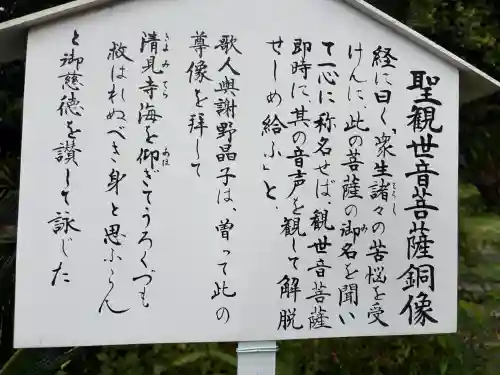 聖観世音菩薩銅像
経に曰く「衆生諸々の苦悩を受
けんに、此の菩薩の御名を聞い
て一心に称名せば、観世音菩薩
即時に、其の音声を観して解脱
せしめ給ふ」と、
歌人與謝野晶子は、曽って此の
尊像を拝して
清見寺海を仰ぎてうろくづも
救はれぬべき身と思ふらん
と御慈徳を讃して詠じた